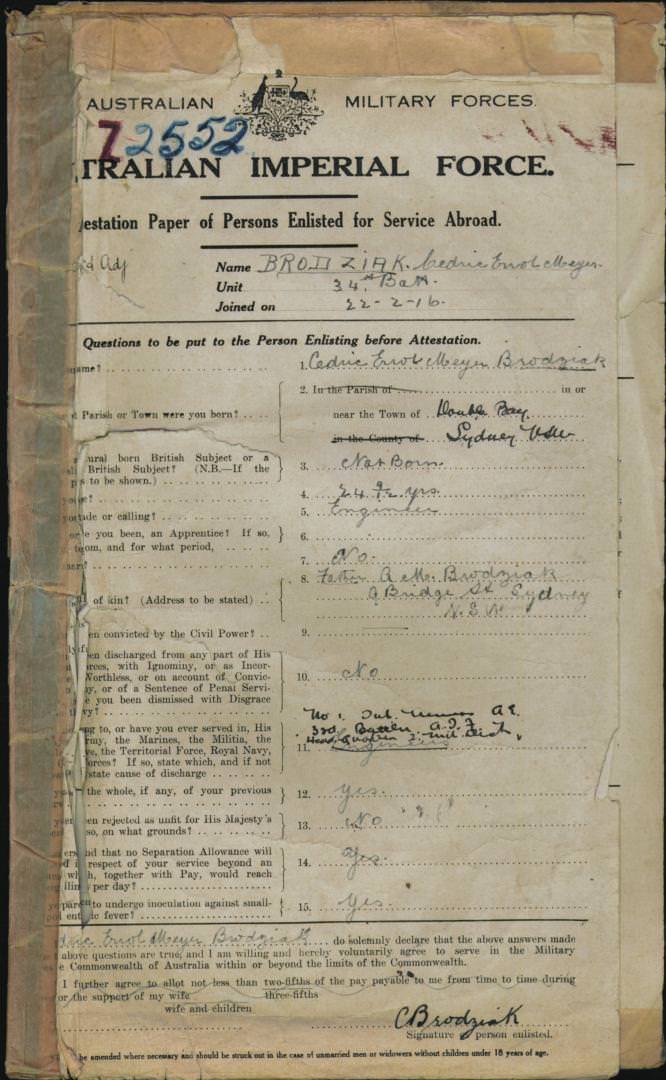 AUSTRALIAN MILITARY FORCES.
72552
TRALIAN IMPERIAL FORCE.
estation Paper of Persons Enlisted for Service Abroad.
Adj
Name BRODZIAK. Cedric Errol Meyer.
Unit 34th Batt.
Joined on 22-2-16.
Questions to be put to the Person Enlisting before Attestation.
name? 1. Cedric Errol Meyer Brodziak
2. In the Parish of in or
Parish or Town were you born? near the Town of Double Bay
in the County of Sydney NSW
ural born British Subject or a
British Subject? (N.B.—If the
to be shown.) 3. Nat Born
4. 24 9/12 yrs
ade or calling? 5. Engineer
you been, an Apprentice? If so,
om, and for what period, 6.
7. No.
8. Father A M. Brodziak
of kin? (Address to be stated) 9 Bridge St Sydney
N.S.W
en convicted by the Civil Power? 9.
en discharged from any part of His
orces, with Ignominy, or as Incor-
Worthless, or on account of Convic-
y, or of a Sentence of Penal Servi-
you been dismissed with Disgrace
vy? 10. No
No 1.
ng to, or have you ever served, in His 3rd Battn A.I.F
rmy, the Marines, the Militia, the Head Quarters 2. Mil. Dist.
ve, the Territorial Force, Royal Navy, 11. Engineers
orces? If so, state which, and if not
state cause of discharge
the whole, if any, of your previous 12. Yes.
en rejected as unfit for His Majesty's
so, on what grounds? 13. No
and that no Separation Allowance will
respect of your service beyond an
which, together with Pay, would reach
per day? 14. Yes.
to undergo inoculation against small-
fever? 15. Yes
Cedric Errol Meyer Brodziak do solemnly declare that the above answers made
above questions are true, and I am willing and hereby voluntarily agree to serve in the Military
Commonwealth of Australia within or beyond the limits of the Commonwealth.
I further agree to allot not less than two-fifths of the pay payable to me from time to time during
or the support of my wife three-fifths
wife and children
C Brodziak
Signature person enlisted.
be amended where necessary and should be struck out in the case of unmarried men or widowers without children under 18 years of age.